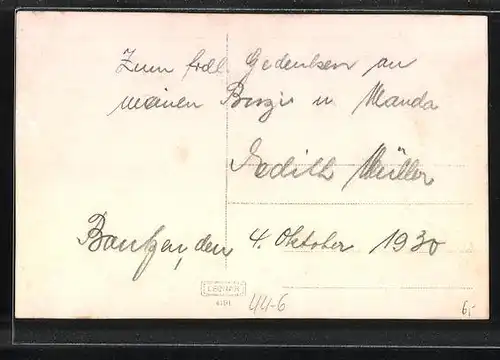 Zum frdl. Gedenken an
meinen Burzi u Manda
Edith Müller
Bautzen, den 4. Oktober 1930
LEONAR
44-6
6,-